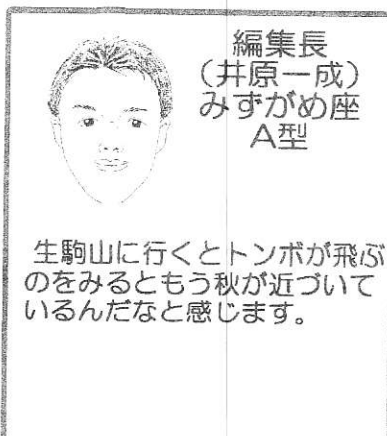 編集長
(井原一成)
みずがめ座
A型
生駒山に行くとトンボが飛ぶ
のをみるともう秋が近づいて
いるんだなと感じます。